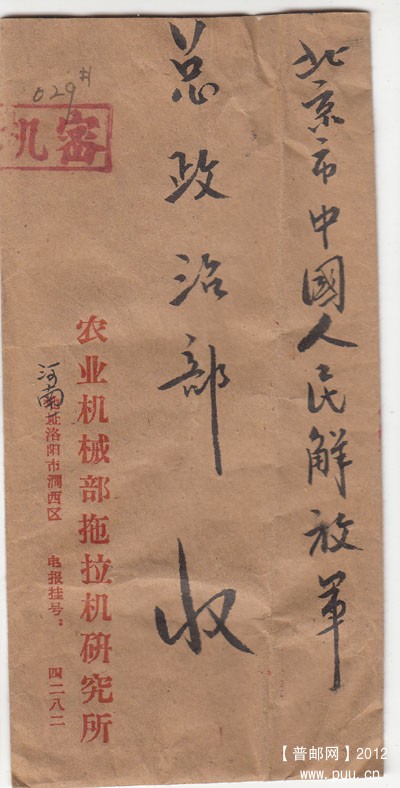 北京市中國人民解放軍
总政治部 收
029#
机審
农业机械部拖拉机研究所
河南
地址洛阳市涧西区 电报挂号：四二八二
【普邮网】2012
www.puu.cn